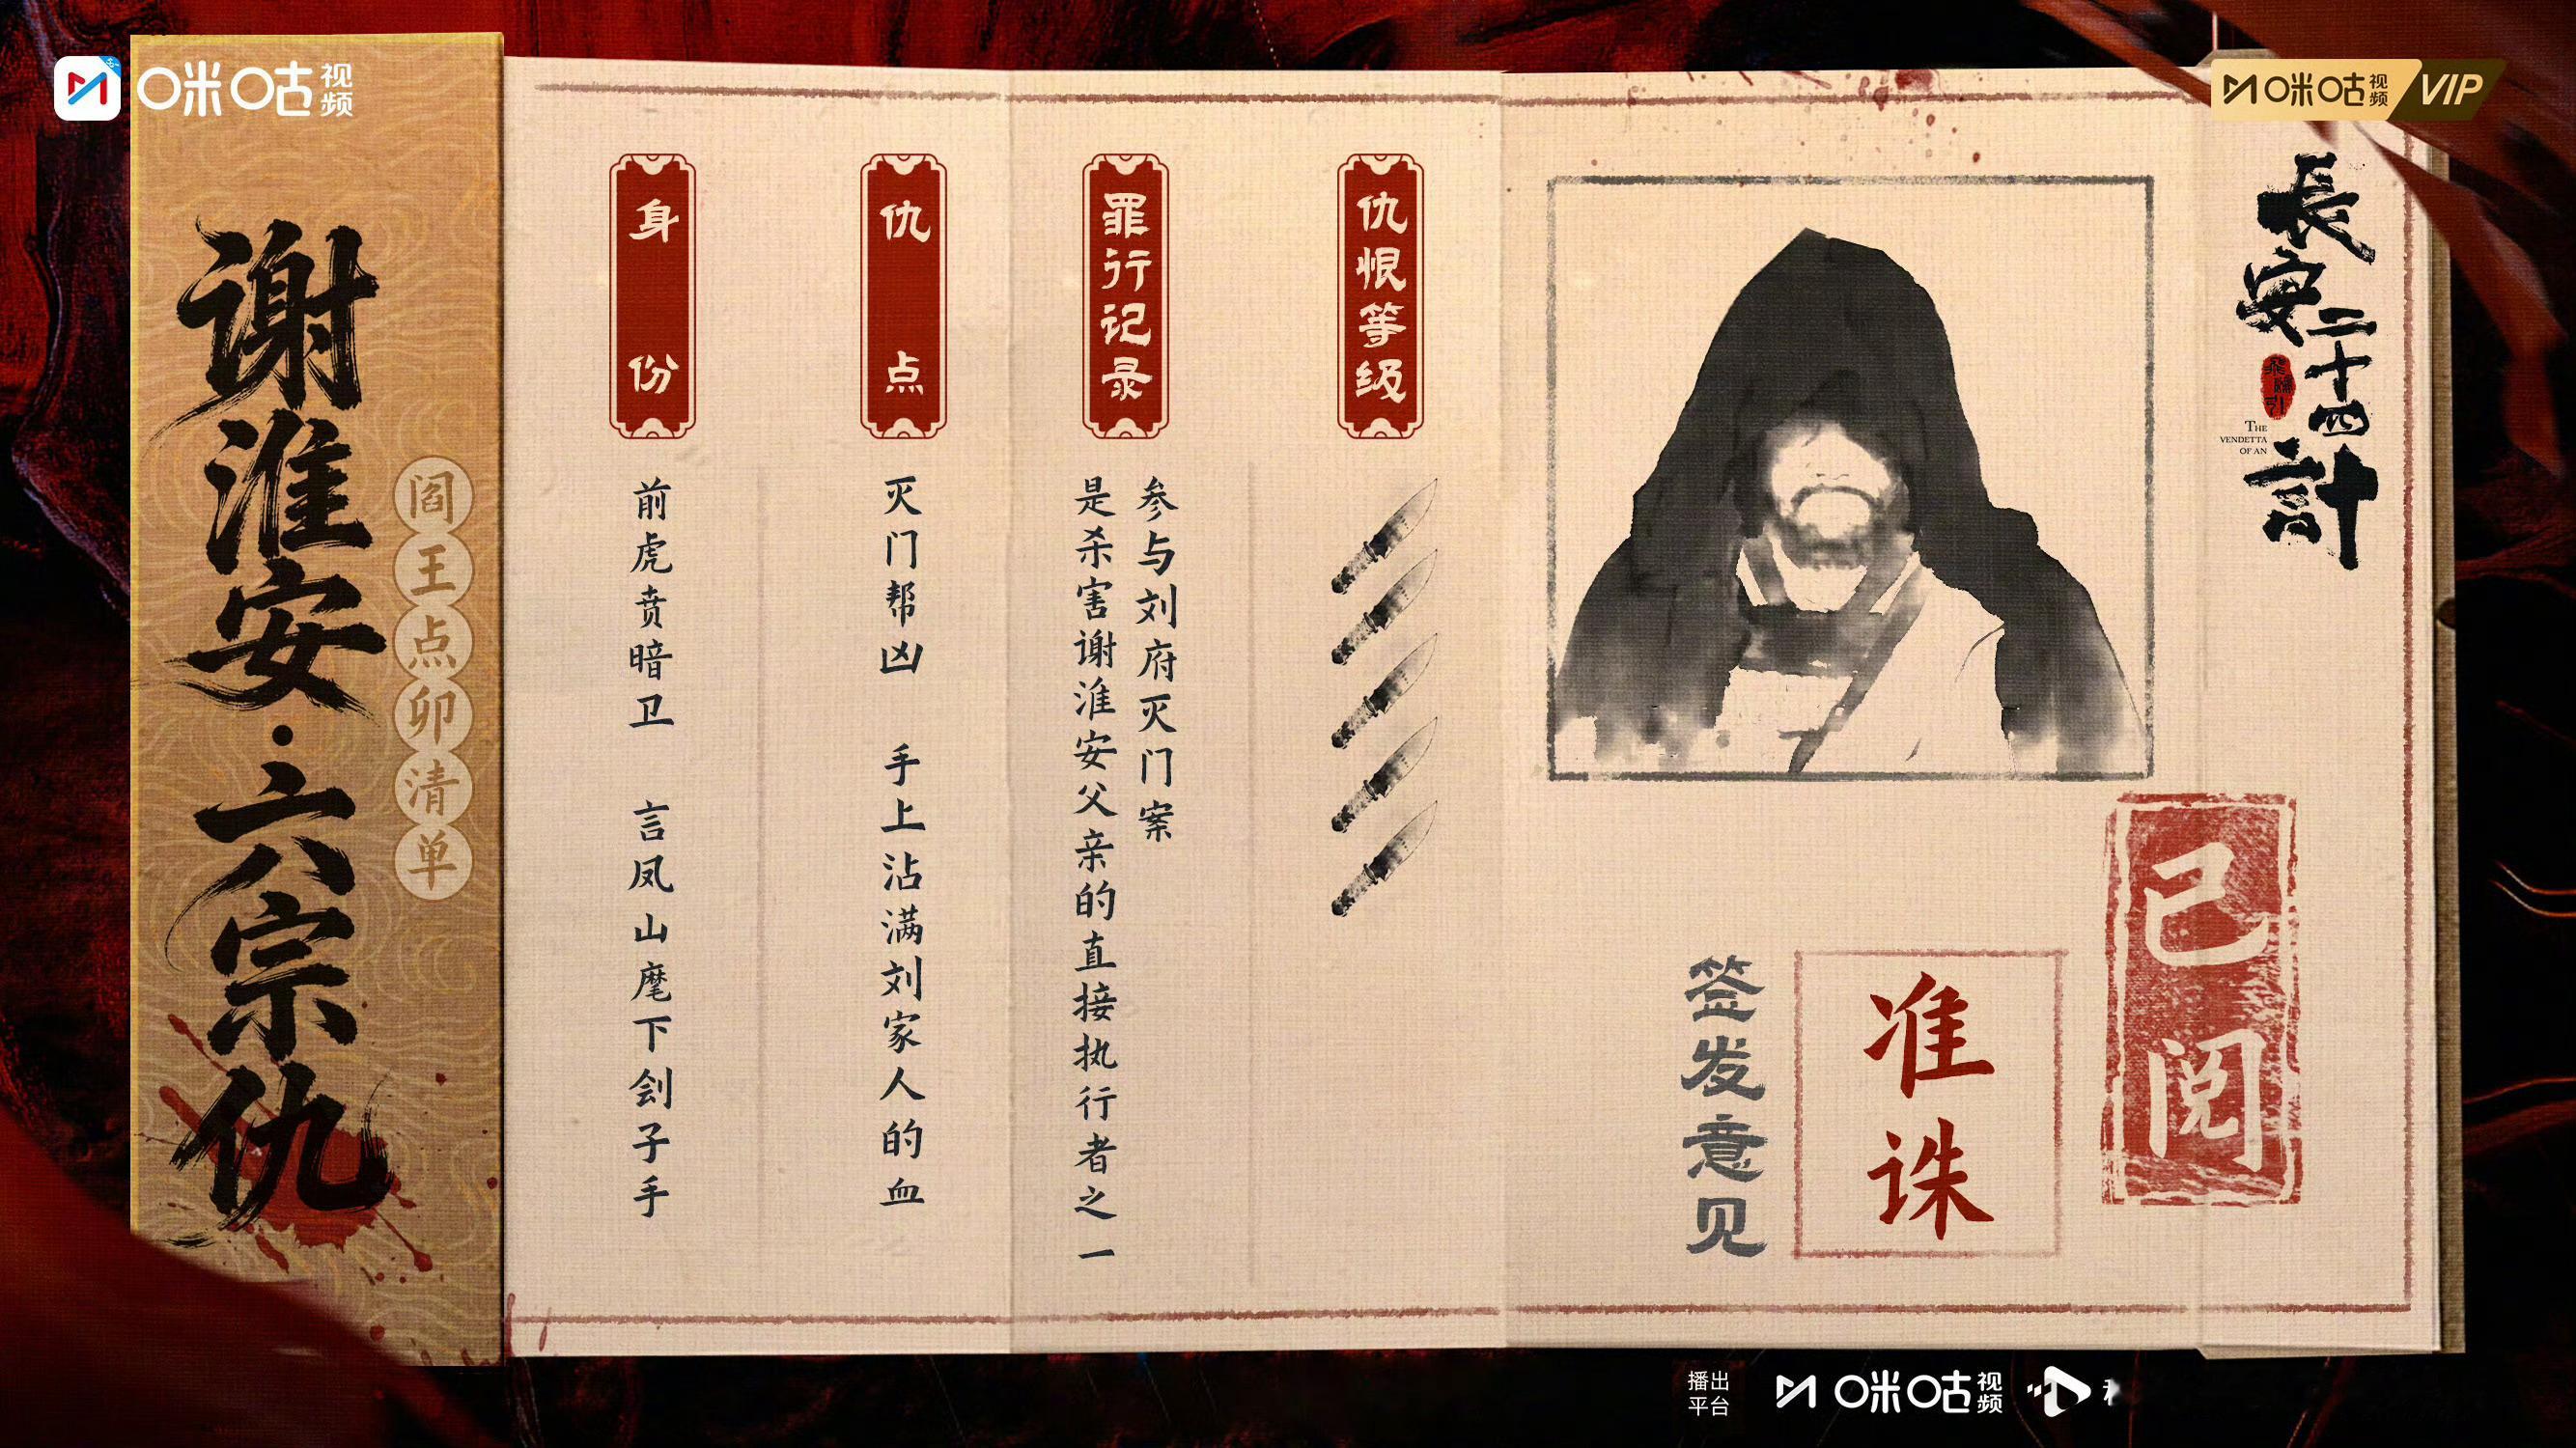 咪咕视频
咪咕视频 VIP
谢淮安·六宗仇
阎王点卯清单
身份
前虎贲暗卫 言凤山麾下刽子手
仇点
灭门帮凶 手上沾满刘家人的血
罪行记录
参与刘府灭门案
是杀害谢淮安父亲的直接执行者之一
仇恨等级
长安二十四計
THE
VENDETTA
OF AN
已阅
签发意见
准诛
播出
平台
咪咕视频